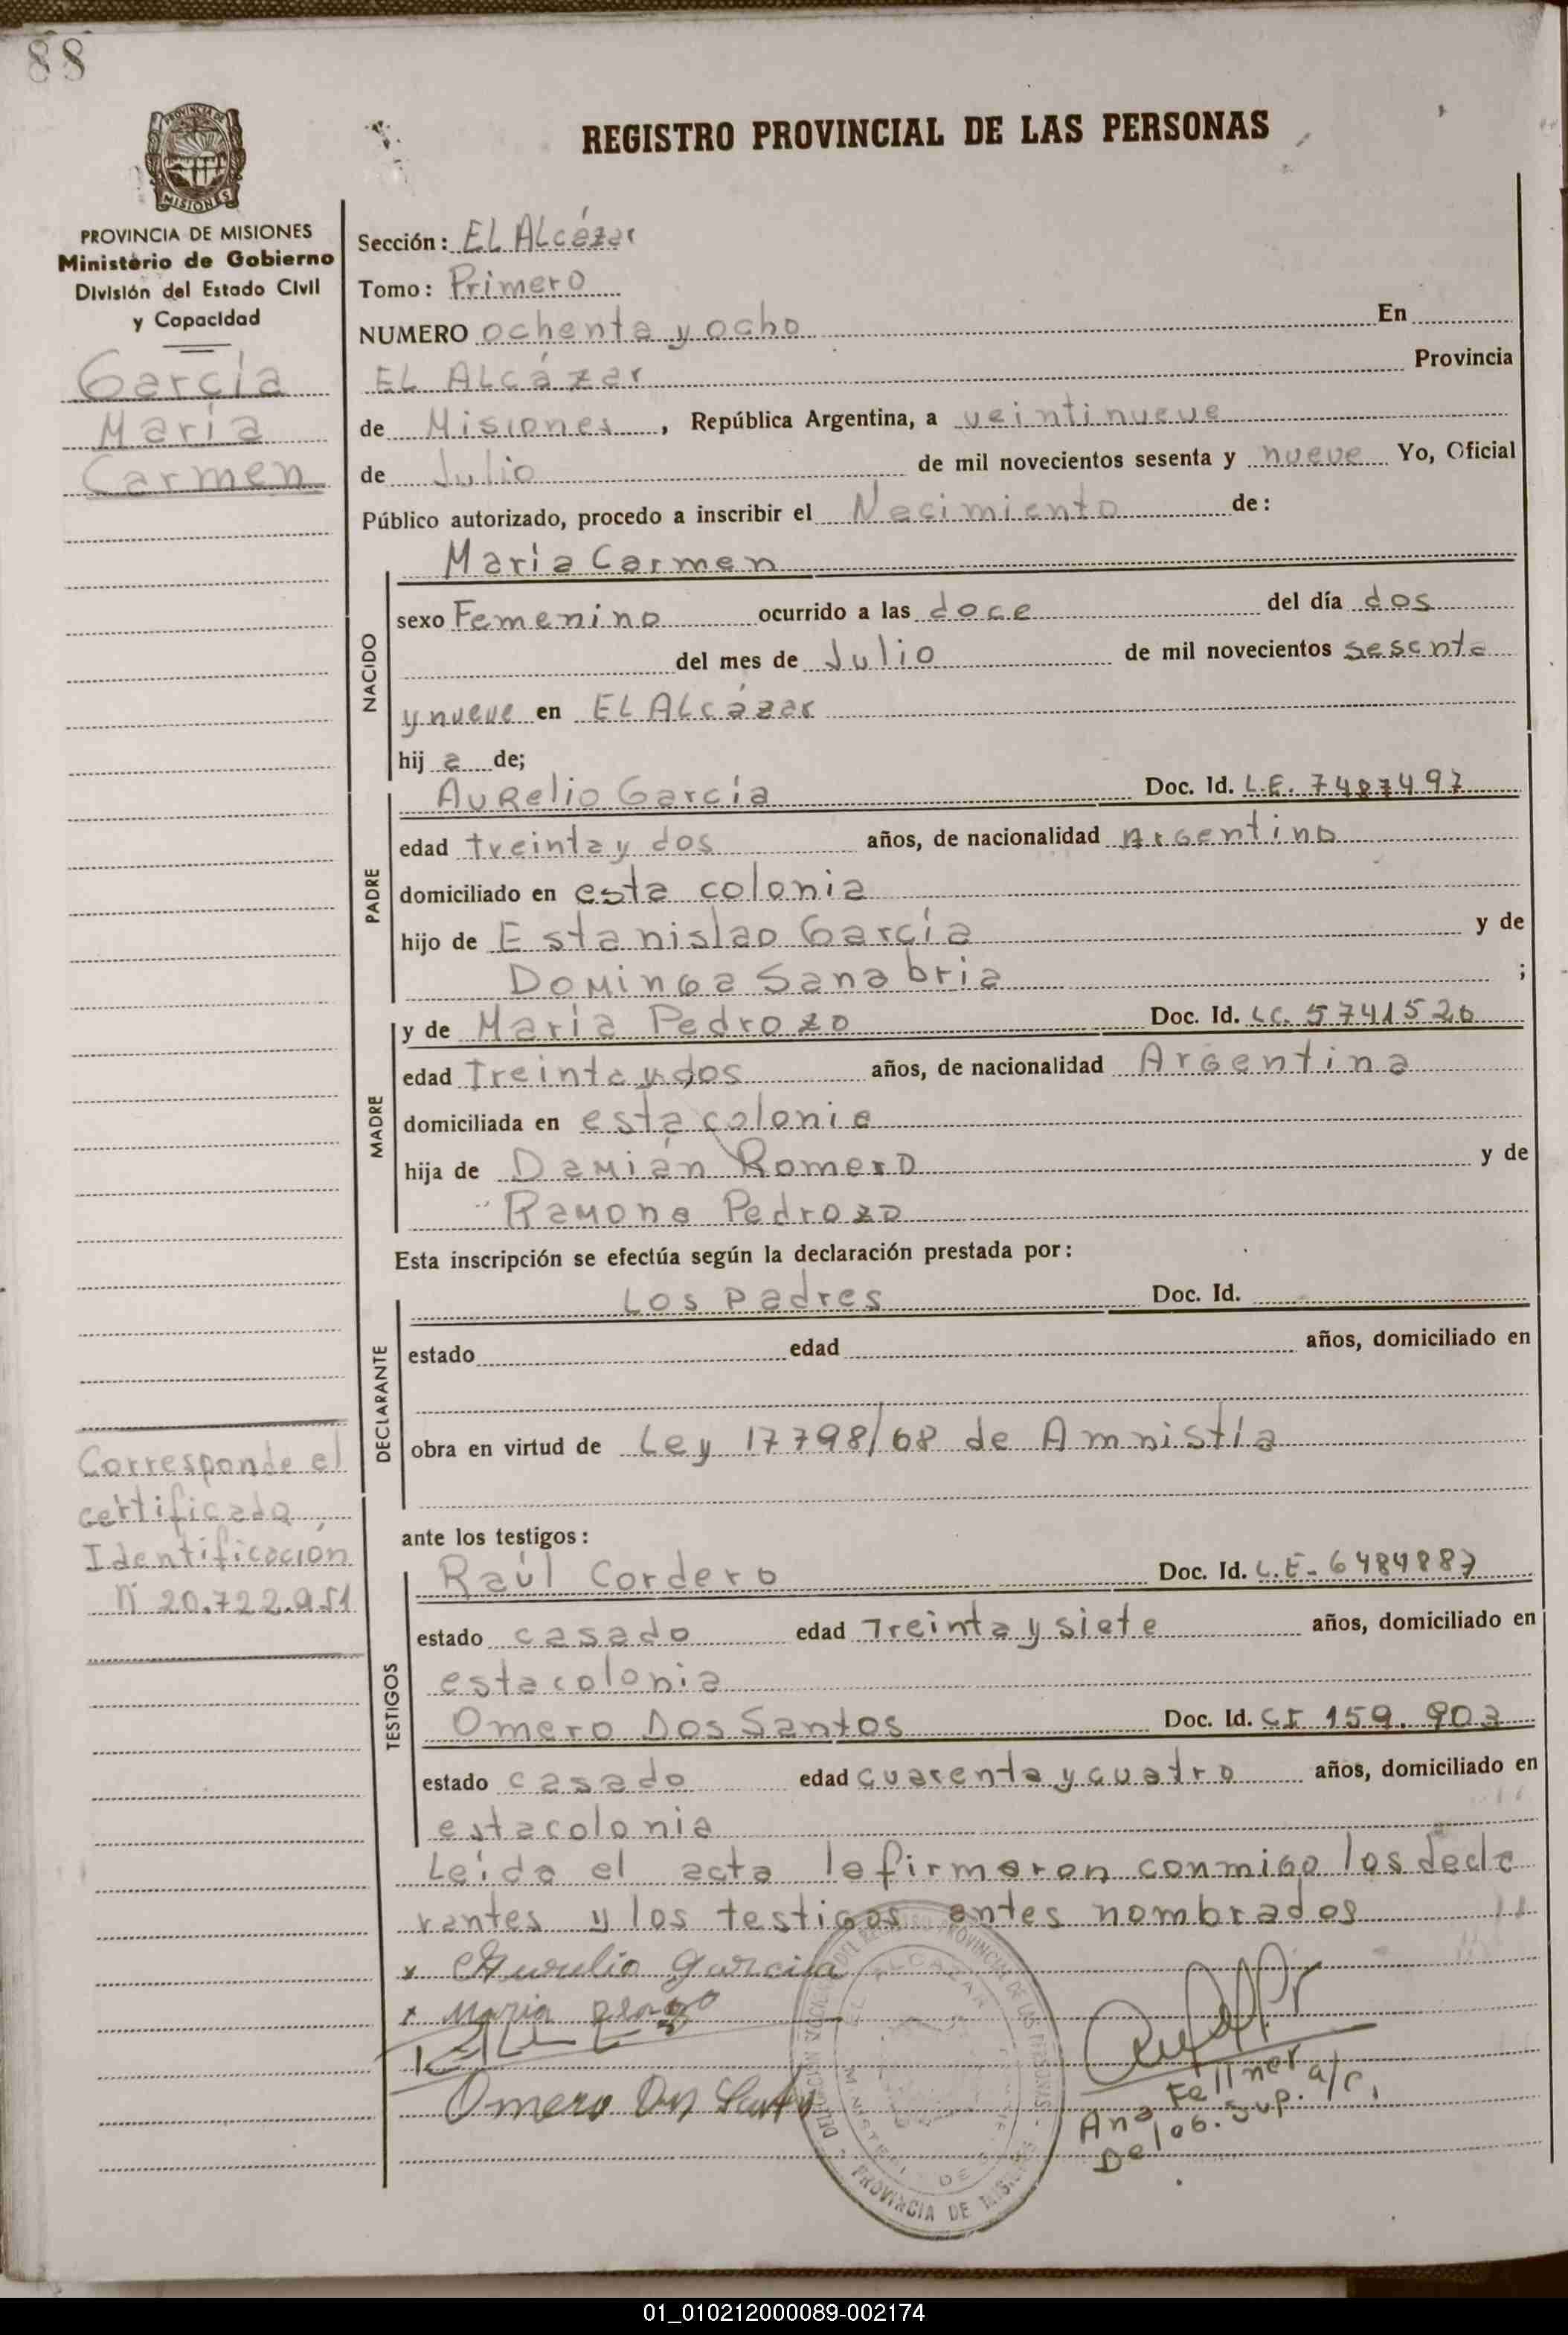 88
PROVINCIA DE
MISIONES
REGISTRO PROVINCIAL DE LAS PERSONAS
PROVINCIA DE MISIONES
Ministerio de Gobierno
División del Estado Civil
y Capacidad
García
María
Carmen
Sección: EL ALcázar
Tomo: Primero
NUMERO ochenta y ocho En
EL ALcázar Provincia
de Misiones, República Argentina, a veintinueve
de Julio de mil novecientos sesenta y nueve Yo, Oficial
Público autorizado, procedo a inscribir el Nacimiento de:
María Carmen
NACIDO
sexo Femenino ocurrido a las doce del día dos
del mes de Julio de mil novecientos sesenta
y nueve en EL ALcázar
hij a de;
PADRE
AuRelio García Doc. Id. L.E. 7487497
edad treinta y dos años, de nacionalidad Argentino
domiciliado en esta colonia
hijo de Estanislao García y de
Dominga Sanabria ;
MADRE
y de María Pedrozo Doc. Id. LC. 5741520
edad Treinta y dos años, de nacionalidad Argentina
domiciliada en esta colonia
hija de Damián Romero y de
Ramona Pedrozo
Esta inscripción se efectúa según la declaración prestada por:
DECLARANTE
Los Padres Doc. Id.
estado edad años, domiciliado en
obra en virtud de Ley 17798/68 de Amnistía
Corresponde el
certificado
Identificación
N 20.722.951
ante los testigos:
TESTIGOS
Raúl Cordero Doc. Id. L.E- 6484887
estado casado edad Treinta y siete años, domiciliado en
esta colonia
Omero Dos Santos Doc. Id. CI 159.903
estado casado edad cuarenta y cuatro años, domiciliado en
esta colonia
Leída el acta lafirmaron conmigo los decla
rantes y los testigos antes nombrados
x Aurelio Garciia
x Maria
Omero Dos Santos
PROVINCIA DE MISIONES
Ana Fellner a/c.
Deleg. Sup.
01_010212000089-002174